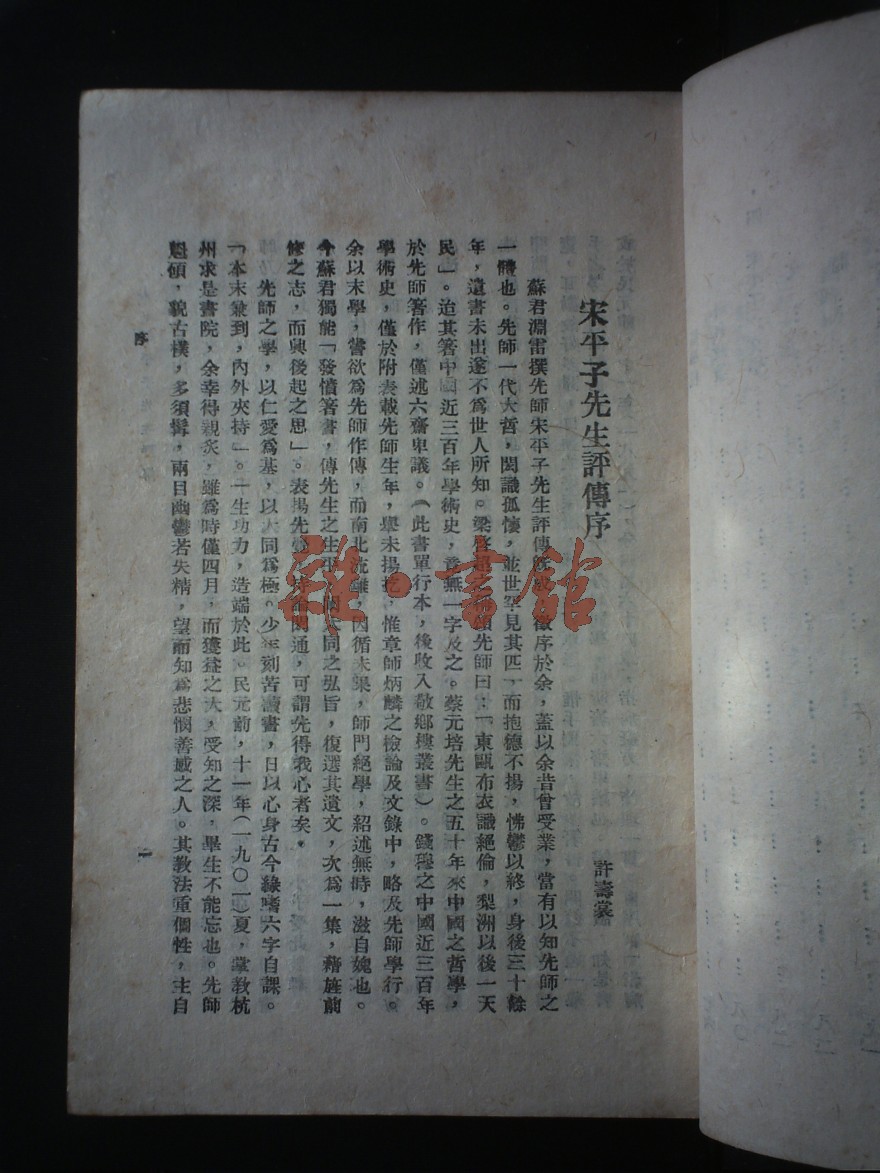 宋平子先生評傳序
許壽裳
蘇君淵雷撰先師宋平子先生評傳旣成徵序於余，蓋以余昔曾受業，當有以知先師之
一體也。先師一代大哲，閎識孤懷，並世罕見其匹，而抱德不揚，怫鬱以終，身後三十餘
年，遺書未出遂不爲世人所知。梁啓超之稱頌先師曰：「東甌布衣識絕倫，梨洲以後一天
民」。迨其箸中國近三百年學術史，竟無一字及之。蔡元培先生之五十年來中國之哲學，
於先師箸作，僅述六齋卑議。（此書單行本，後收入敬鄉樓叢書）。錢穆之中國近三百年
學術史，僅於附表載先師生年，舉未揚挖，惟章師炳麟之檢論及文錄中，略及先師學行。
余以末學，嘗欲爲先師作傳，而南北流離，因循未果，師門絕學，紹述無時，滋自媿也。
今蘇君獨能「發憤箸書，傳先生之生平，闡大同之弘旨，復選其遺文，次爲一集，藉旌前
修之志，而興後起之思」。表揚先覺，持論閎通，可謂先得我心者矣。
先師之學，以仁愛爲基，以大同爲極。少年刻苦讀書，日以心身古今緣嗜六字自課。
「本末兼到，內外夾持」。一生功力，造端於此。民元前，十一年（一九〇一）夏，掌教杭
州求是書院，余幸得親炙，雖爲時僅四月，而獲益之大，受知之深，畢生不能忘也。先師
魁碩，貌古樸，多須髯，兩目幽鬱若失精，望而知爲悲憫善感之人。其教法重個性，主自
序
一
雜·書館